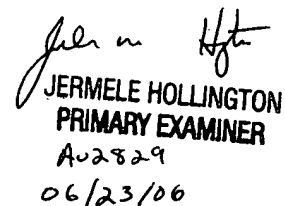 JERMELE HOLLINGTON
PRIMARY EXAMINER
AU2829
06/23/06